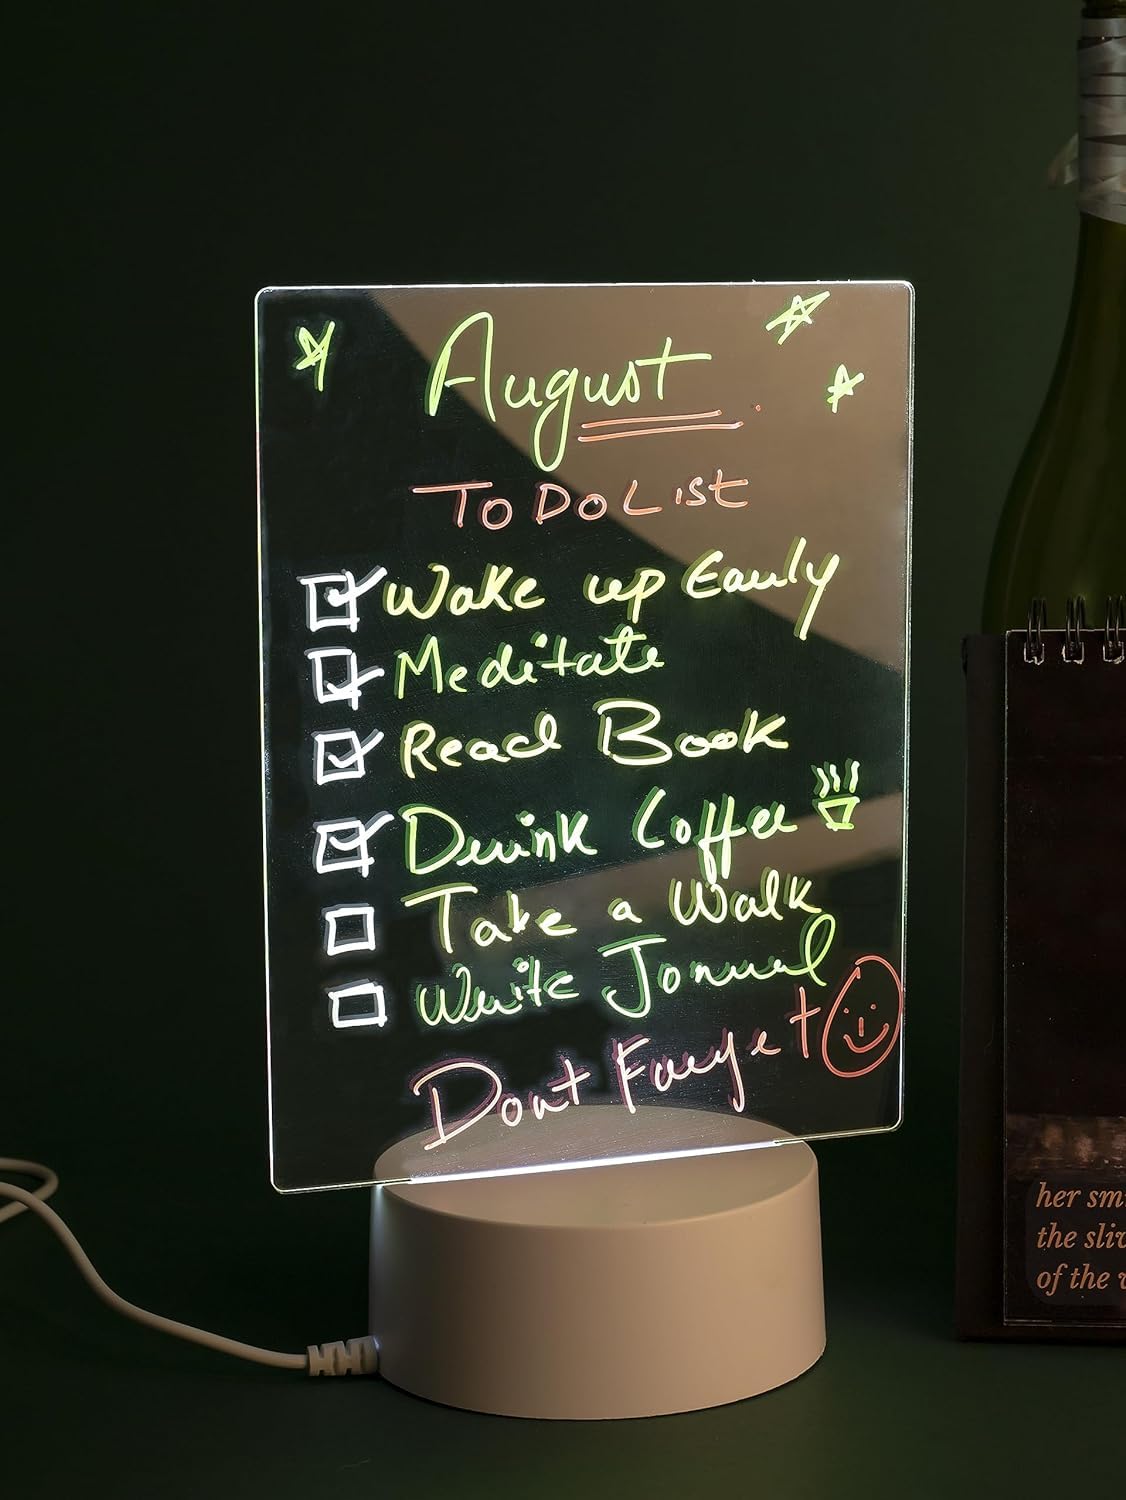 August
To Do List
Wake up Early
Meditate
Read Book
Drink Coffee
Take a Walk
Write Jonual
Dont Forget
her sm
the sli
of the